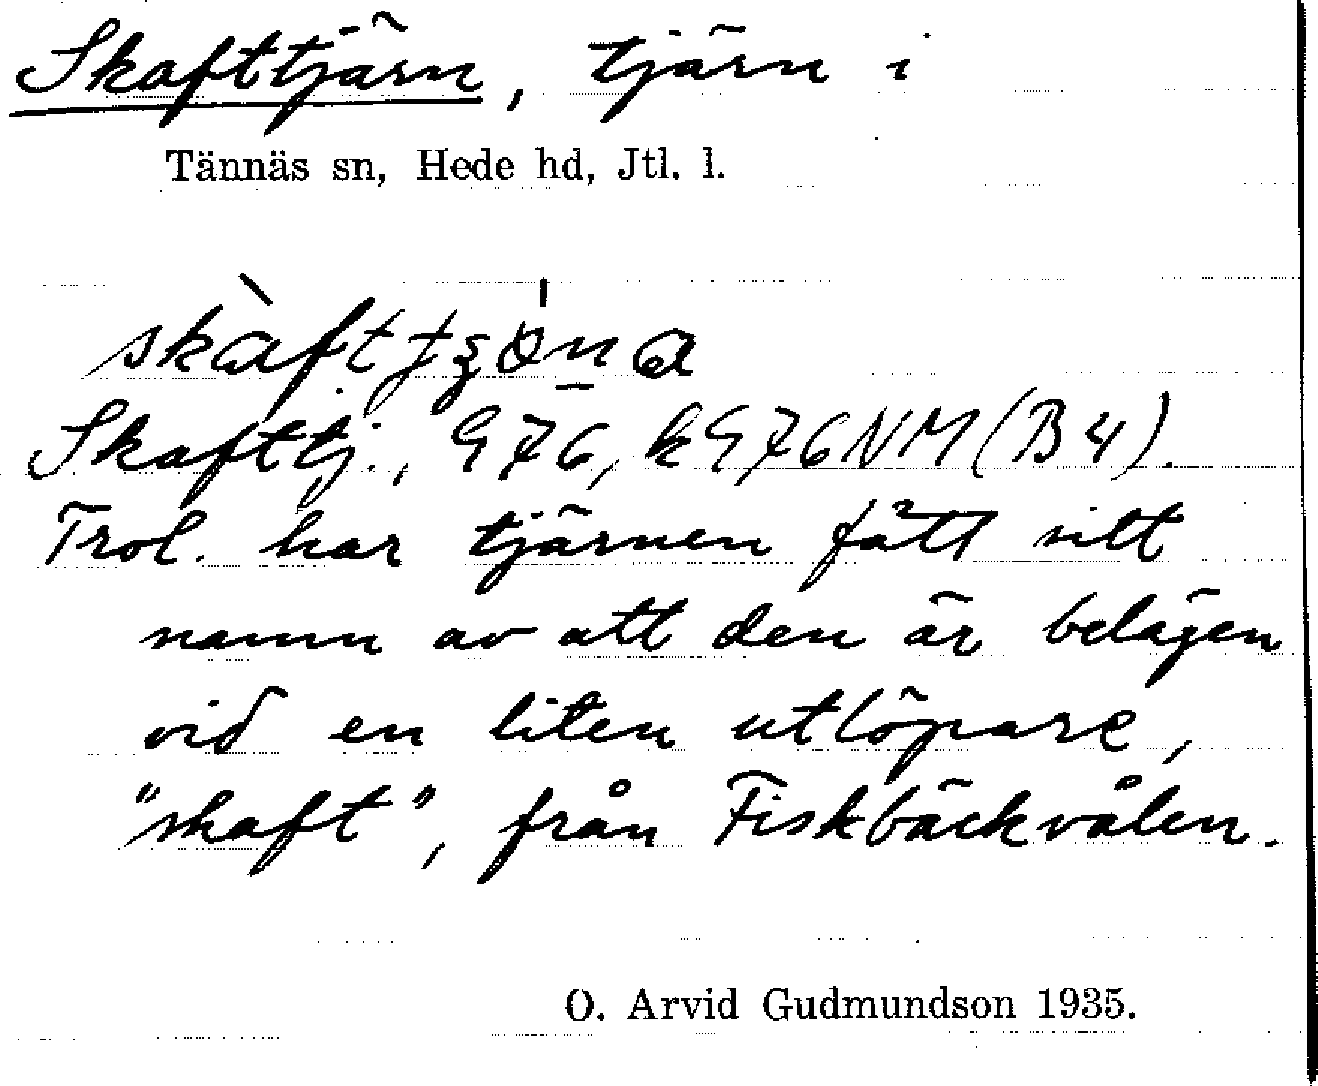 Skafttjärn, tjärn i
Tännäs sn, Hede hd, Jtl. l.
Skafttj., G76, kG76NM(B4).
Trol. har tjärnen fått sitt
namn av att den är belägen
vid en liten utlöpare,
"skaft", från Fiskbäckvålen.
O. Arvid Gudmundson 1935.